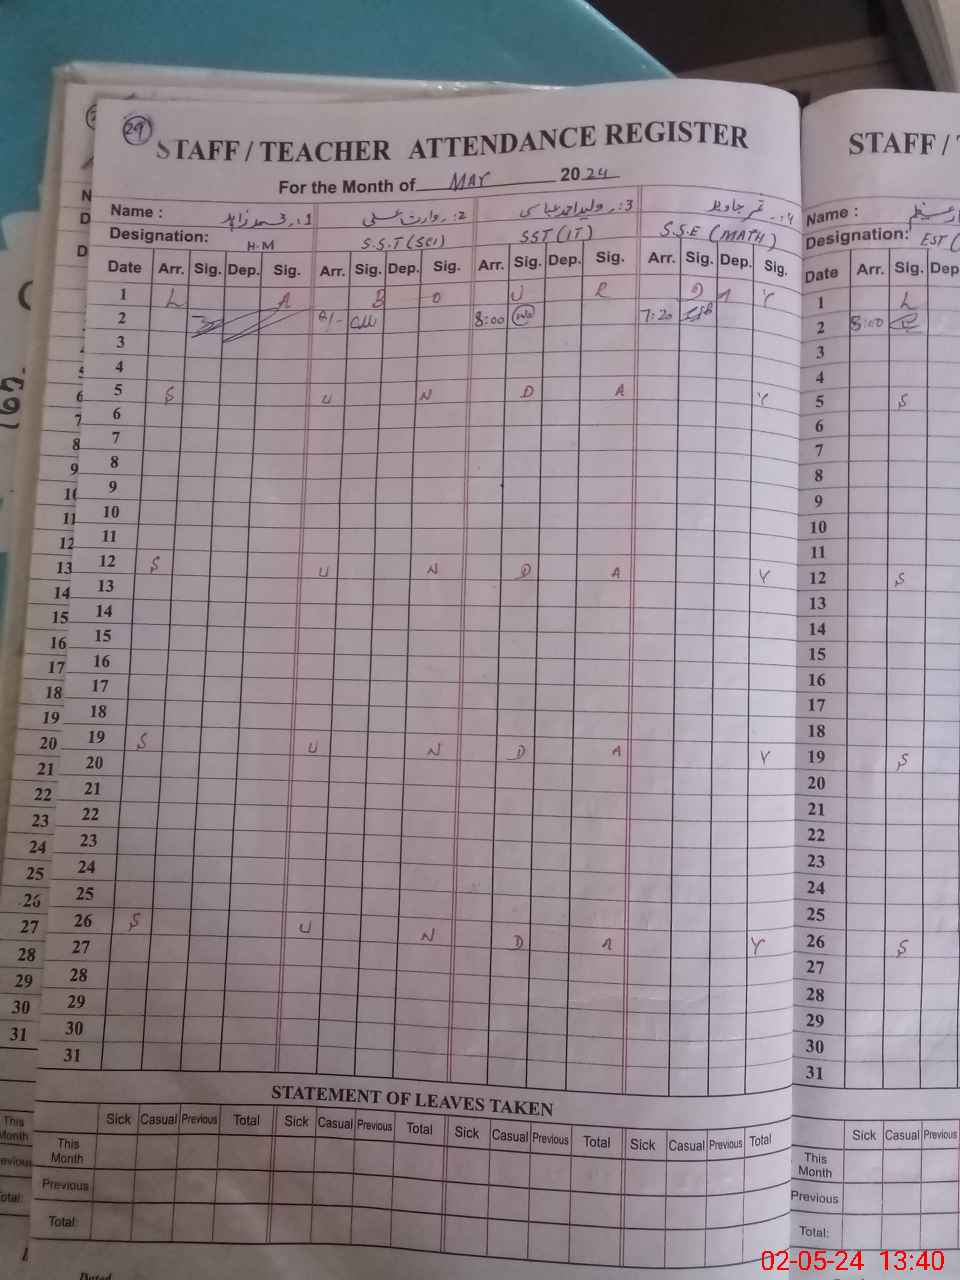 29
STAFF / TEACHER ATTENDANCE REGISTER
For the Month of MAY 2024
Name : 1. محمد زاہد 2. وارث علی 3. ولید احمد عباسی 4. قمر جاوید
Designation: H.M S.S.T (SCI) SST (IT) S.S.E (MATH)
Date Arr. Sig. Dep. Sig. Arr. Sig. Dep. Sig. Arr. Sig. Dep. Sig. Arr. Sig. Dep. Sig.
1 L A B O U R D A Y
2 8:00 7:20
3
4
5 S U N D A Y
6
7
8
9
10
11
12 S U N D A Y
13
14
15
16
17
18
19 S U N D A Y
20
21
22
23
24
25
26 S U N D A Y
27
28
29
30
31
STATEMENT OF LEAVES TAKEN
Sick Casual Previous Total Sick Casual Previous Total Sick Casual Previous Total Sick Casual Previous Total
This Month
Previous
Total:
STAFF /
Name :
Designation: EST
Date Arr. Sig. Dep
1 L
2 8:00
3
4
5 S
6
7
8
9
10
11
12 S
13
14
15
16
17
18
19 S
20
21
22
23
24
25
26 S
27
28
29
30
31
Sick Casual Previous
This Month
Previous
Total:
02-05-24 13:40